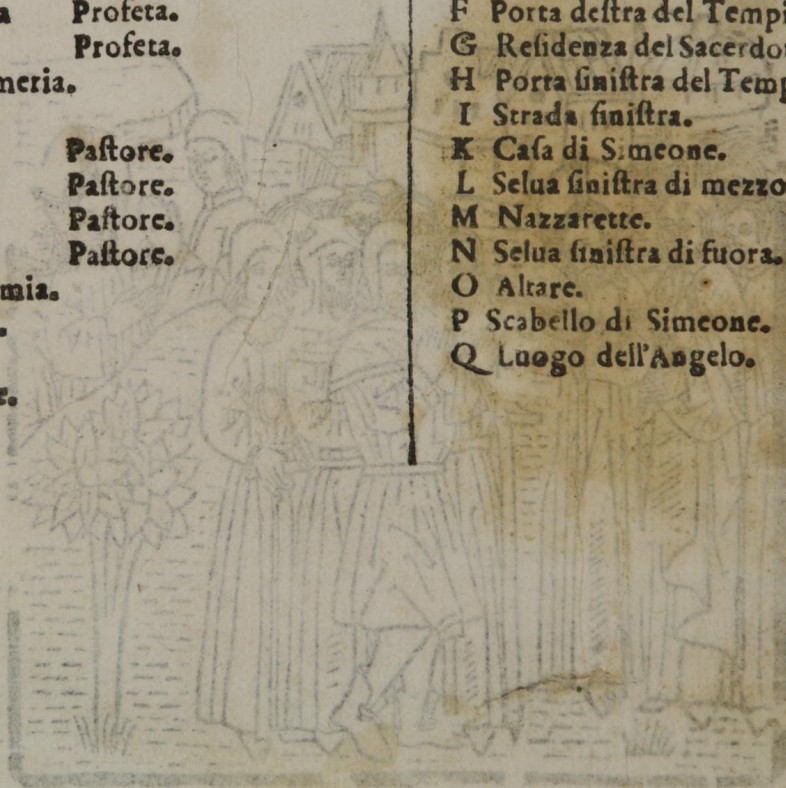 Profeta.
Profeta.
meria.
Paſtore.
Paſtore.
Paſtore.
Paſtore.
mia.
F Porta deſtra del Tempi
G Reſidenza del Sacerdo
H Porta ſiniſtra del Temp
I Strada ſiniſtra.
K Caſa di Simeone.
L Selua ſiniſtra di mezzo
M Nazzarette.
N Selua ſiniſtra di fuora.
O Altare.
P Scabello di Simeone.
Q Luogo dell'Angelo.